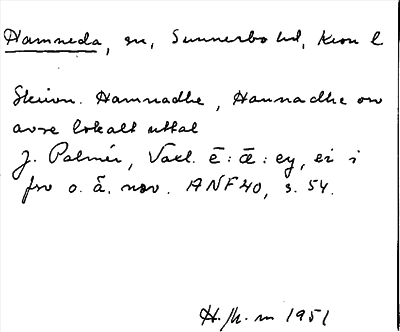 Hamneda, sn, Sunnerbo hd, Kron l
Skrivn. Hamnadhe, Hannadhe om
avse lokalt uttal
J. Palmér, Vaxl. ē : ǣ : ey, ei i
fno o. ä. nor. ANF 40, s. 54.
H. m 1951